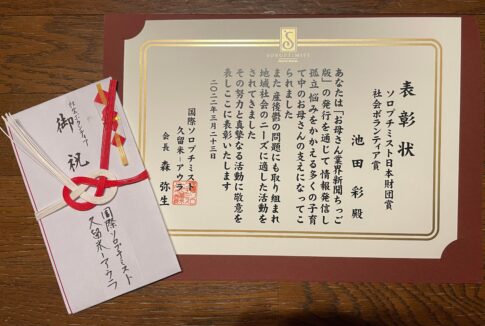 SOROPTIMIST
表彰状
ソロプチミスト日本財団賞
社会ボランティア賞
池田彩殿
あなたは「お母さん業界新聞ちっご
版」の発行を通じて情報発信し
孤立 悩みをかかえる多くの子育
て中のお母さんの支えになってこ
られました
また 産後鬱の問題にも取り組まれ
地域社会のニーズに適した活動を
されてきました
その努力と真摯なる活動に敬意を
表しここに表彰いたします
二〇二二年三月二十三日
国際ソロプチミスト
久留米ーアウラ
会長 森 弥生
社会ボランティア賞
御祝
国際ソロプチミスト
久留米ーアウラ